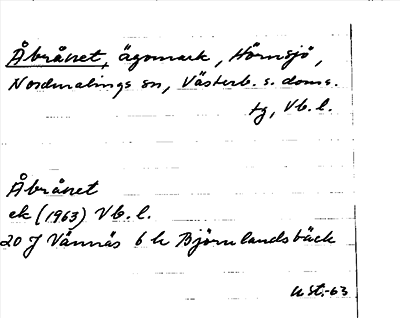 Åbrånet, ägomark, Hörnsjö,
Nordmalings sn, Västerb. s. doms.
tg, Vb. l.
Åbrånet
ek (1963) Vb. l.
20 J Vännäs 6 h Björnlandsbäck
U St.-63